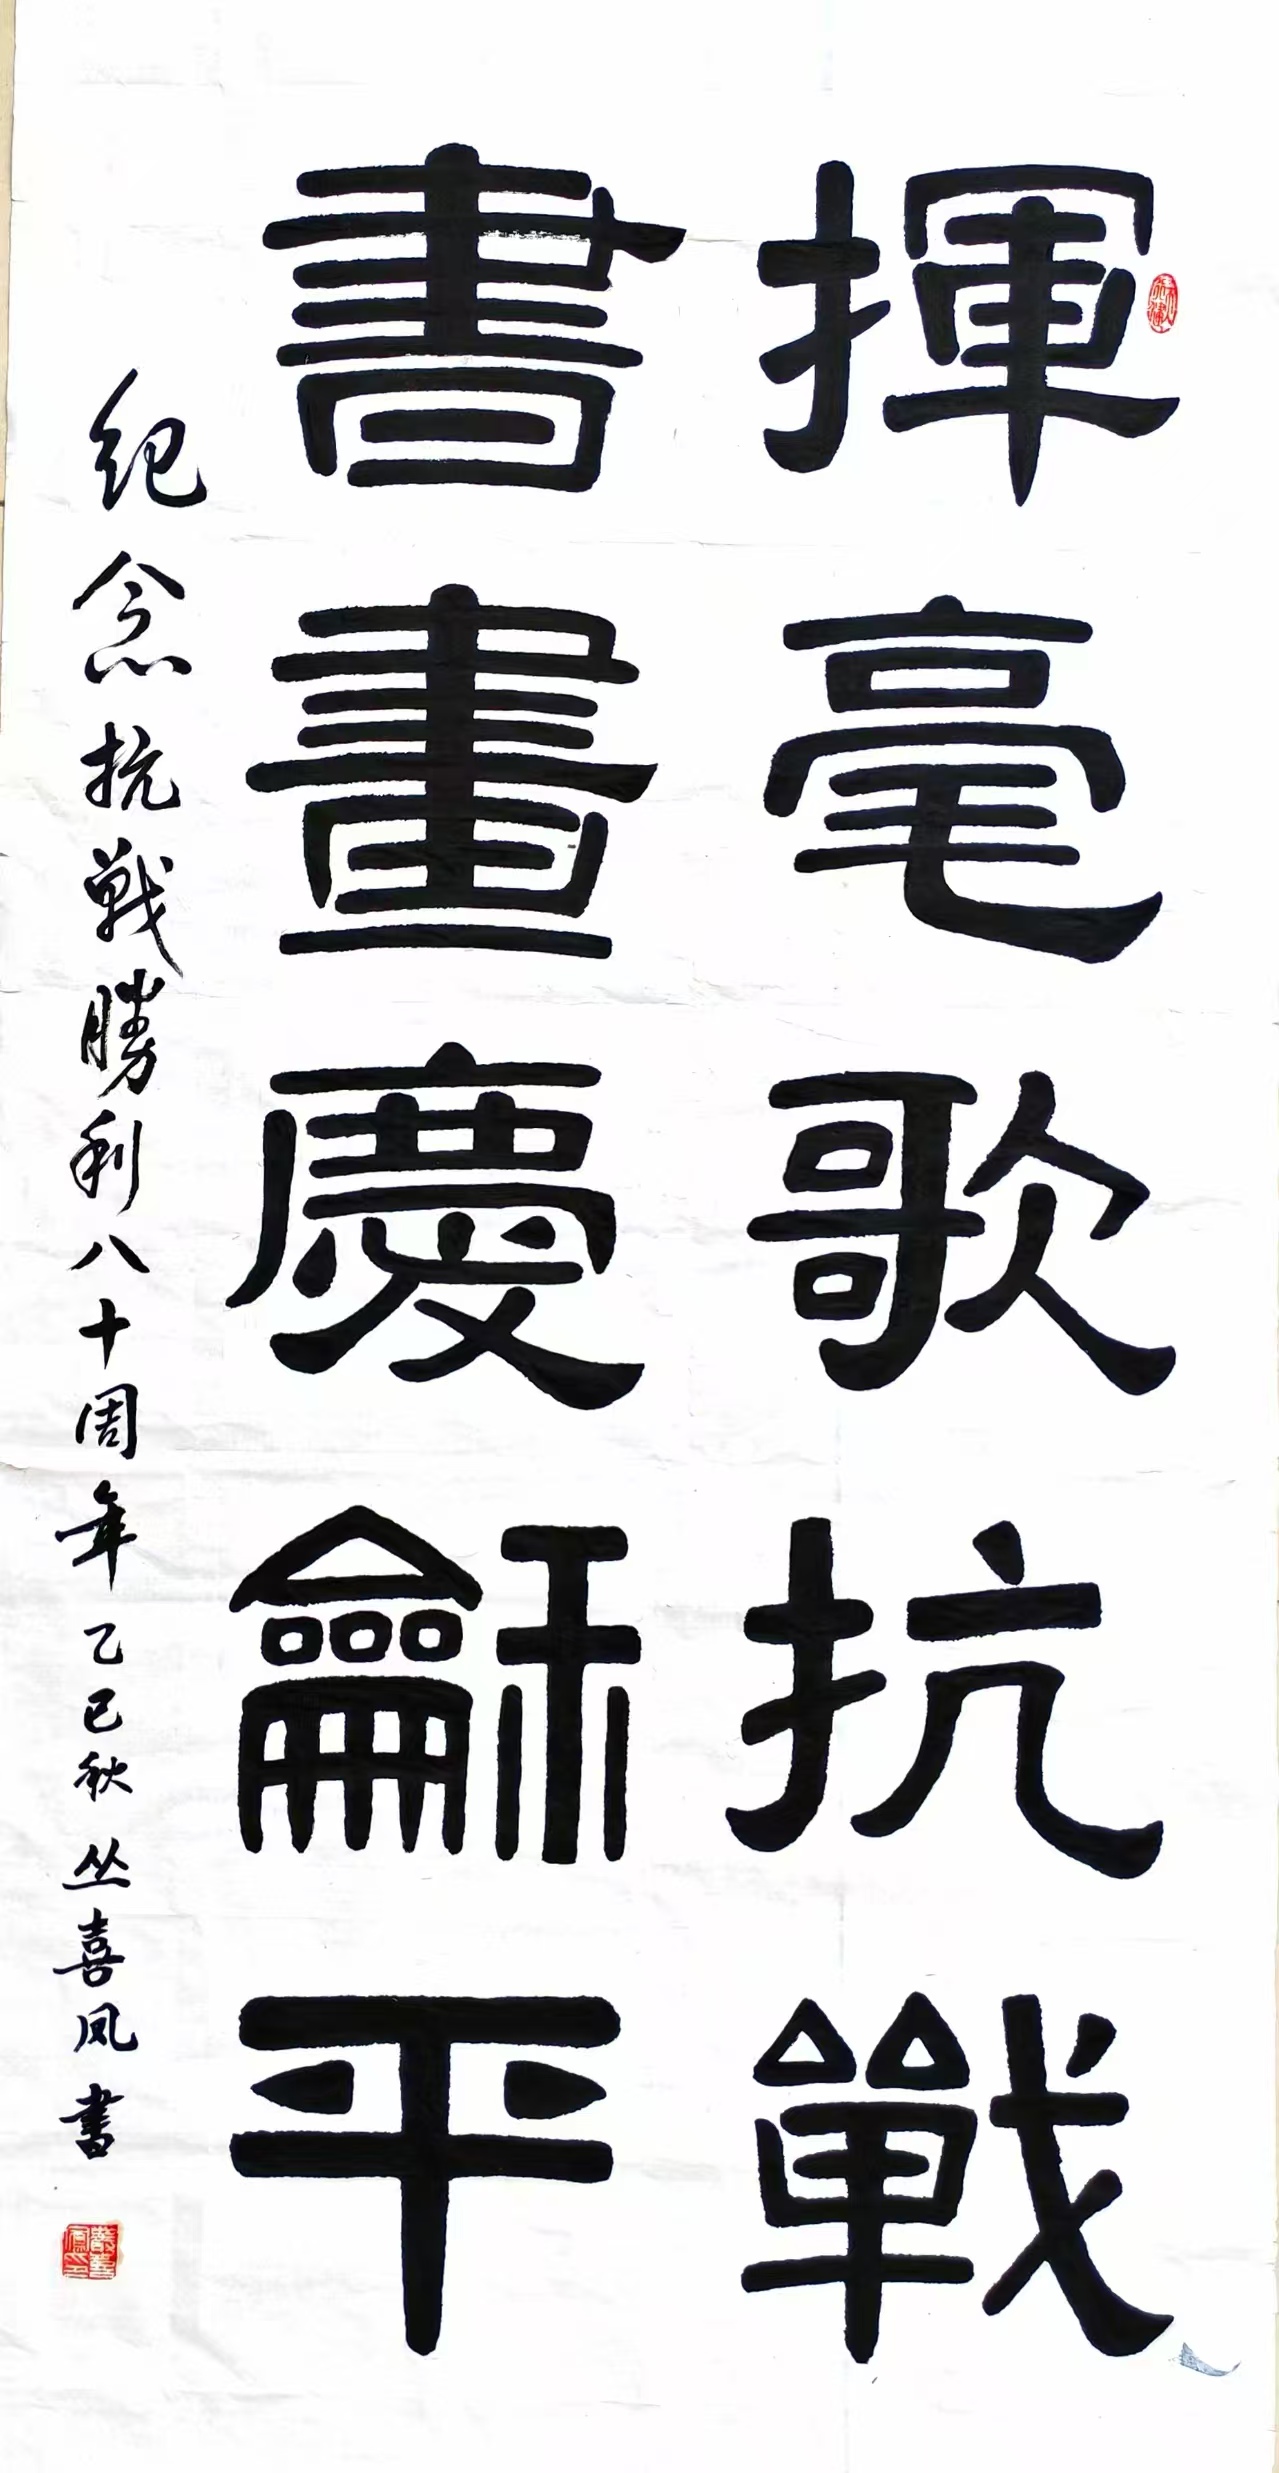 揮毫歌抗戰
書畫慶龢平
纪念抗戰勝利八十周年乙巳秋丛喜凤書